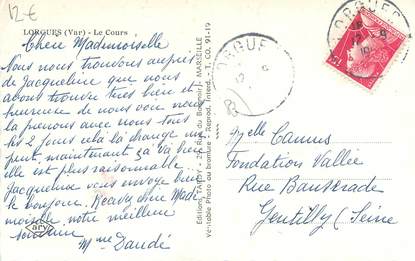 12€
LORGUES (Var) - Le Cours
Chère Mademoiselle
Nous nous trouvons auprès
de Jacqueline que nous
avons trouvée très bien et
heureuse de nous voir nous
la prenons avec nous tous
les 2 jours cela la change un
peut, maintenant ça va bien
elle est plus raisonnable
Jacqueline vous envoye bien
le bonjour. Recevez chère Made
moiselle, notre meilleur
souvenir
Mme Daudé
Editions TARDY - 29, Rue du Bosquet, MARSEILLE
Véritable Photo au bromure - Reprod. Interd. - T. CO. 91-19
LORGUES
LORGUES
15F
Melle Camus
Fondation Vallée
Rue Banserade
Gentilly (Seine